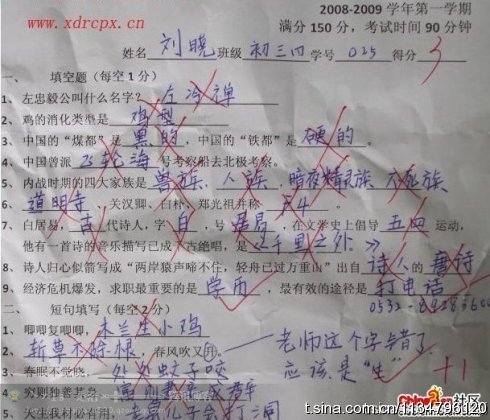 www.xdrcpx.cn
2008-2009 学年第一学期
满分 150 分，考试时间 90 分钟
姓名 刘晓 班级 初三四 学号 025 得分 3
一、 填空题（每空 1 分）
1、左忠毅公叫什么名字？ 左冷禅
2、鸡的消化类型是 鸡型
3、中国的“煤都”是 黑的 ，中国的“铁都”是 硬的 。
4、中国曾派 飞轮海 号考察船去北极考察。
5、内战时期的四大家族是 兽族、人族、暗夜精灵族、不死族
6、 道明寺 、关汉卿、白朴、郑光祖并称 F4 。
7、白居易， 吉 代诗人，字 白 ，号 居易 ，在文学史上倡导 五四 运动，
他有一首诗的音乐描写已成了古绝唱，是 《千里之外》
8、诗人归心似箭写成“两岸猿声啼不住，轻舟已过万重山”出自 诗人 的 唐诗
9、经济危机爆发，求职最重要的是 学历 ，最有效的途径是 打电话
二、 短句填写（每空 2 分）
1、唧唧复唧唧， 木兰生小鸡
2、 斩草不除根 ，春风吹又 —— 老师这个字错了
应该是“生” +1
3、春眠不觉晓， 处处蚊子咬
4、穷则独善其身，
5、天生我材必有用，
社区
t.sina.com.cn/1134796120